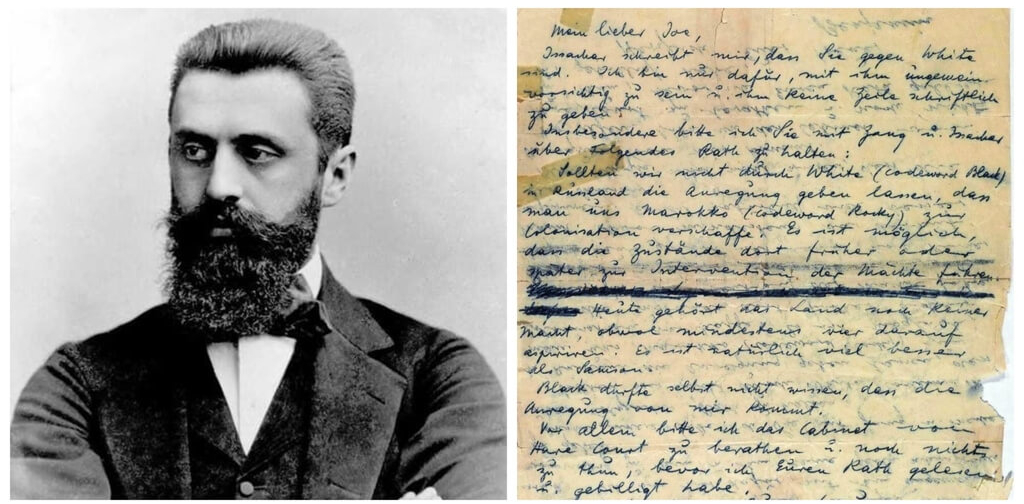 Mein lieber Joe,
Issachar schreibt mir, dass Sie gegen White
sind. Ich bin nur dafür, mit ihm ungemein
vorsichtig zu sein u. ihm keine Zeile schriftlich
zu geben.
Insbesondere bitte ich Sie mit Zang u. Issachar
über Folgendes Rath zu halten:
Sollten wir nicht durch White (Codeword Black)
in Russland die Anregung geben lassen, dass
man uns Marokko (Codeword Rocky) zur
Colonisation verschaffe. Es ist möglich,
dass die Zustände dort früher oder
später zur Intervention der Mächte führen
Heute gehört das Land noch keiner
Macht, obwol mindestens vier darauf
aspiriren. Es ist natürlich viel besser
als Samson.
Black dürfte selbst nicht wissen, dass die
Anregung von mir kommt.
Vor allem bitte ich das Cabinet von
Hare Court zu berathen u. noch nichts
zu thun, bevor ich Euren Rath gelesen
u. gebilligt habe.